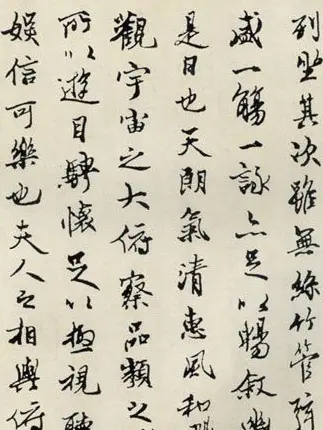 列坐其次雖無絲竹管弦
盛一觴一詠亦足以暢敘幽
是日也天朗氣清惠風和暢
觀宇宙之大俯察品類之
所以遊目騁懷足以極視聽
娛信可樂也夫人之相與俯